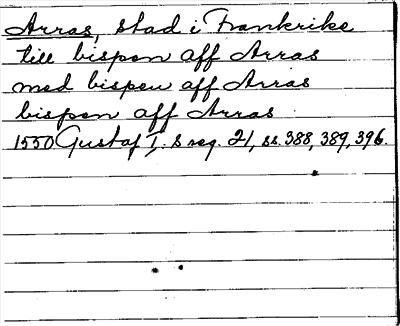 Arras, stad i Frankrike
till bispen aff Arras
med bispen aff Arras
bispen aff Arras
1550 Gustaf I. s reg. 21, ss. 388, 389, 396.